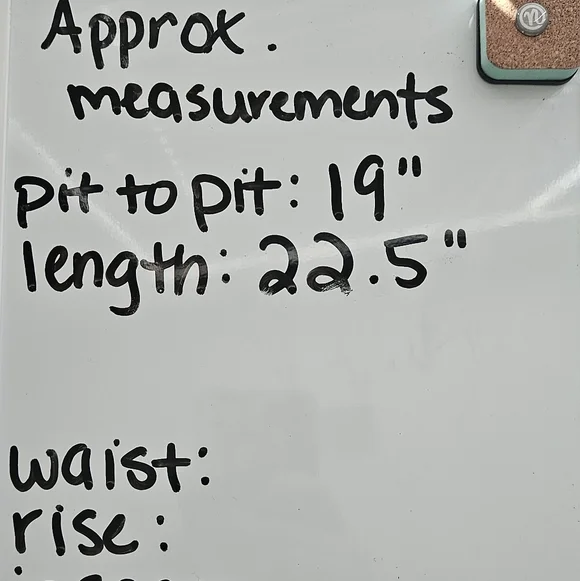 Approx.
measurements
pit to pit: 19"
length: 22.5"
waist:
rise: